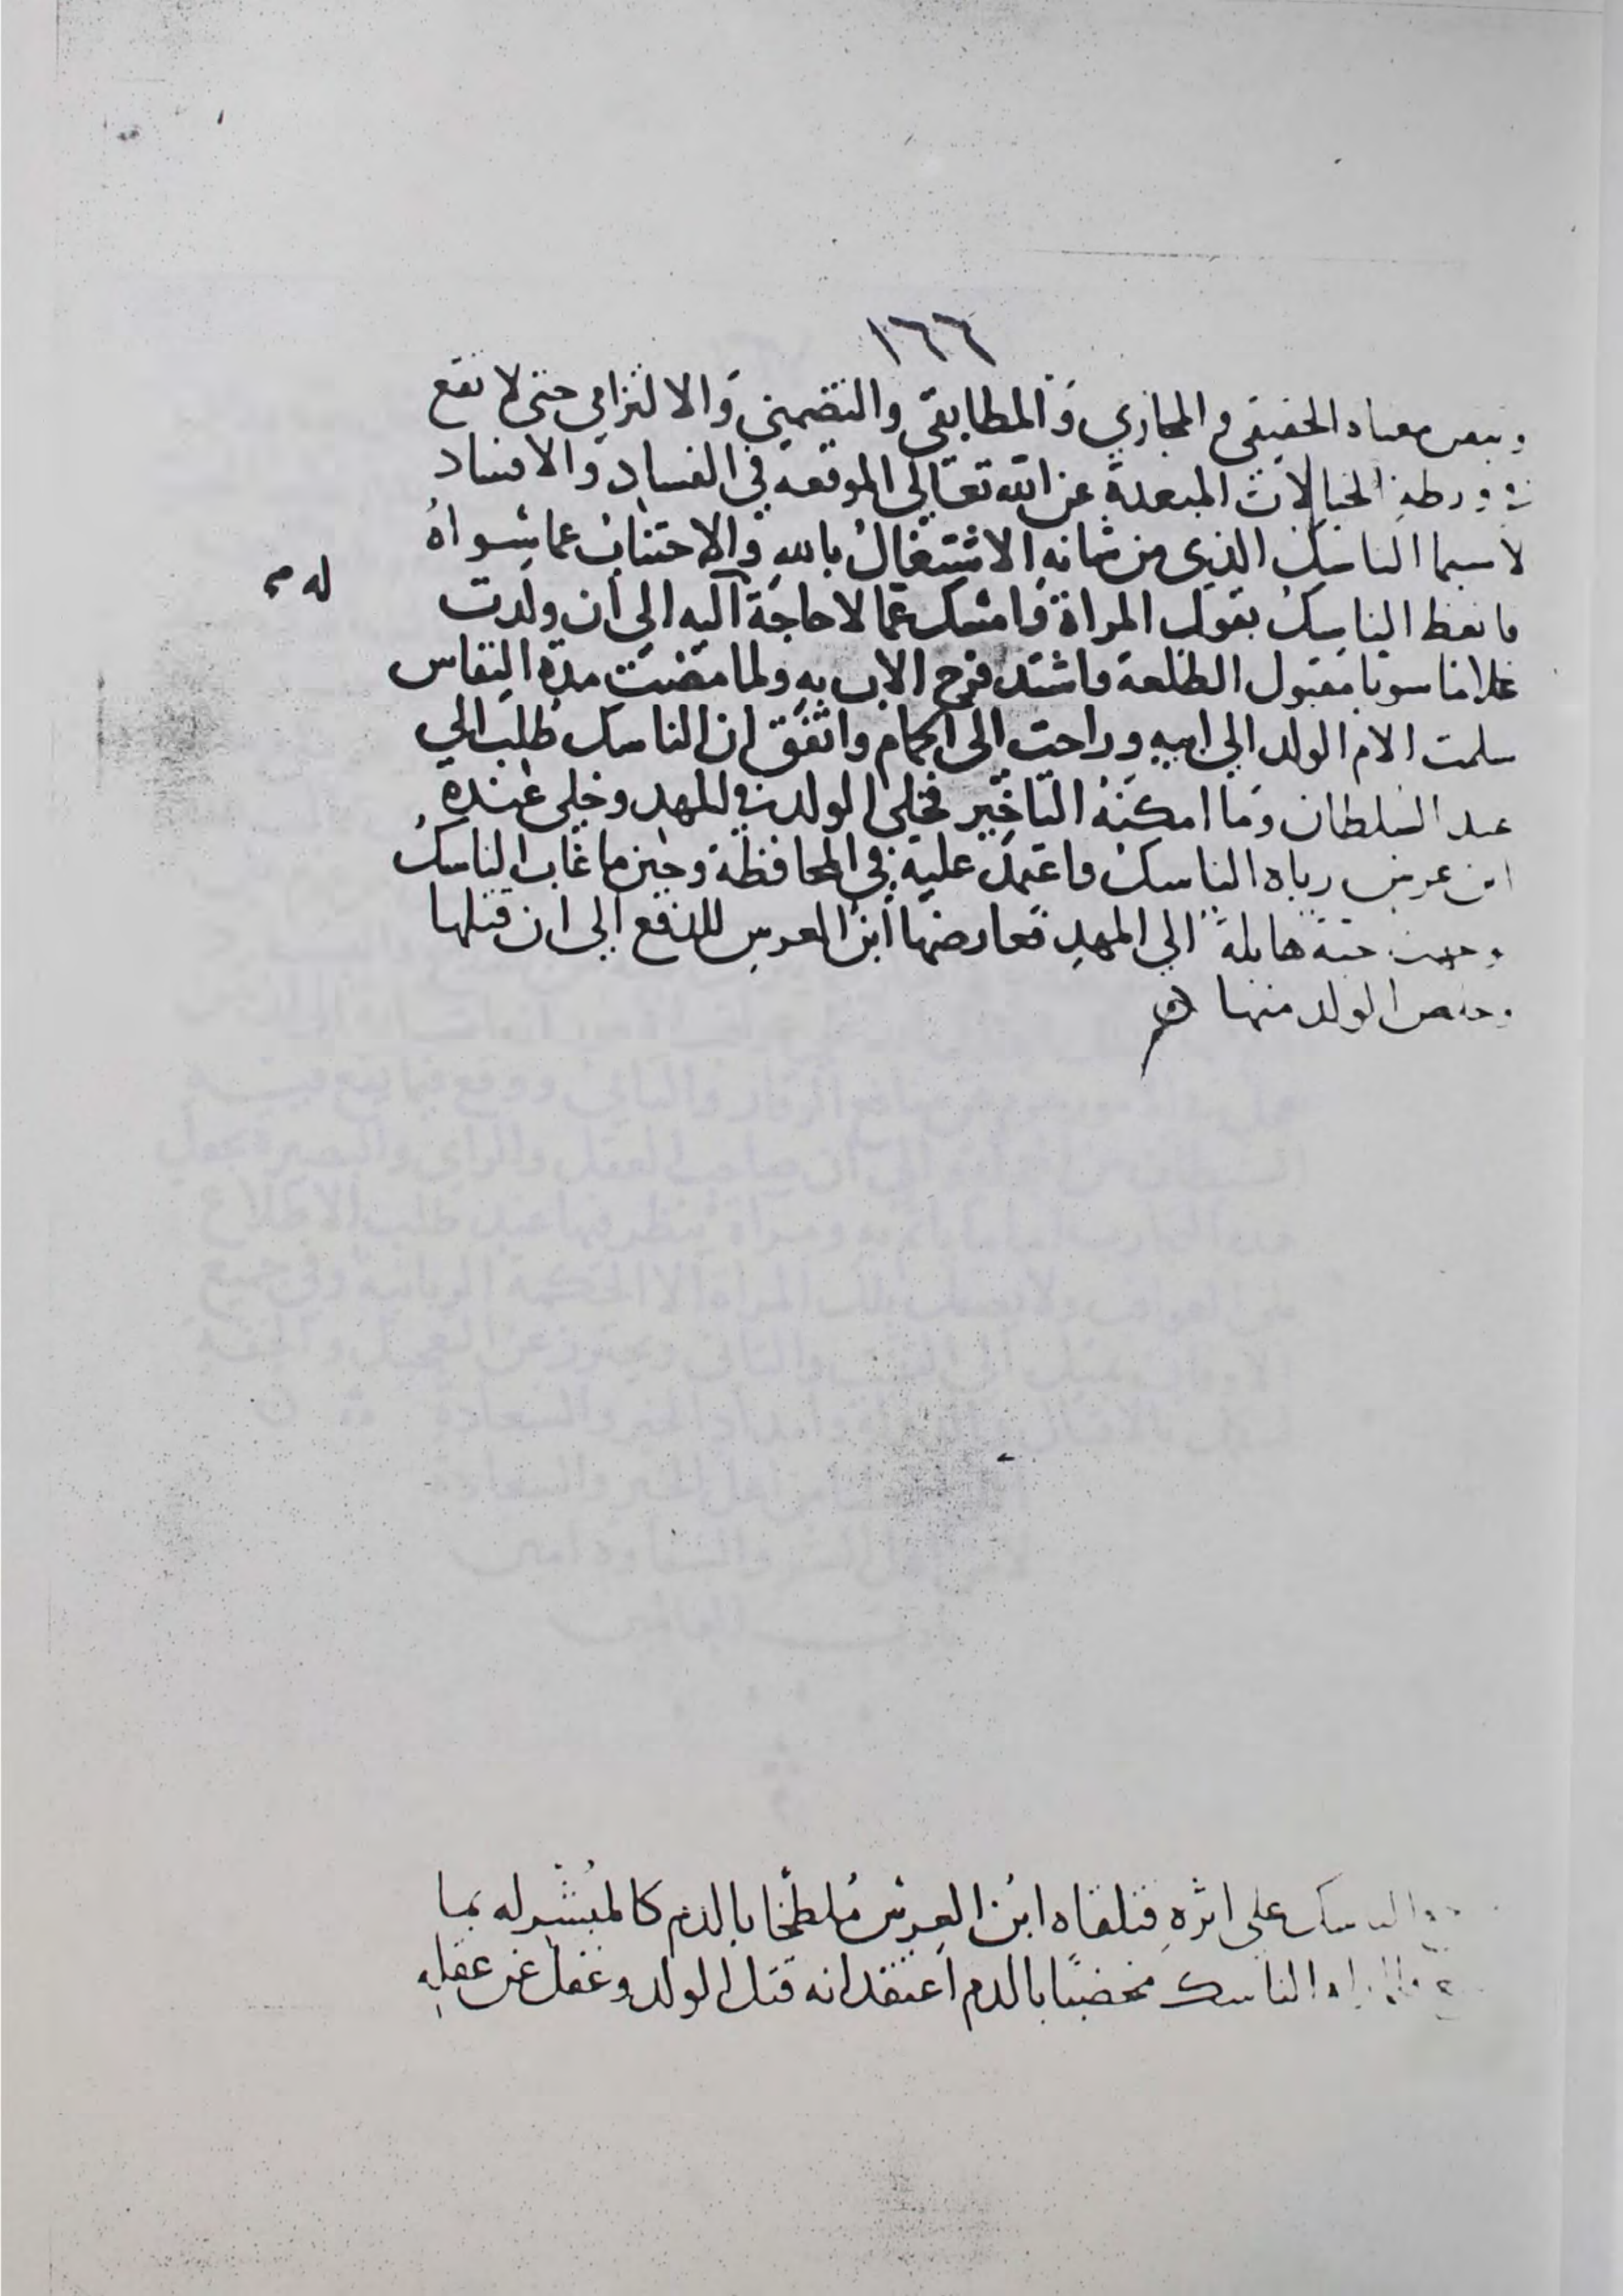 ١٦٦
معناه الحقيقي والمجازي والمطابقي والتضميني والالتزامي حتى لا تقع
ورطة الخيالات المبعدة عن الله تعالى الموقعة في الفساد والافساد
لاسيما الناسك الذي من شانه الاشتغال بالله والاجتناب عما سواه
فاتعظ الناسك بقول المراة فامسك عما لا حاجة اليه الى ان ولدت
له م
غلاما سويا مقبول الطلعة فاشتد فرح الاب به ولما مضت مدة النفاس
سلمت الام الولد الي ابيه وراحت الى الحمام واتفق ان الناسك طلب الي
عند السلطان وما امكنه التاخير فخلى الولد في المهد وخلى عنده
ابن عرس رباه الناسك فاعتمد عليه في المحافظة وحين ما غاب الناسك
حية هايلة الي المهد فعارضها ابن العرس للدفع الى ان قتلها
وخلص الولد منها
الناسك على اثره فتلقاه ابن العرس ملطخا بالدم كالمبشر له بما
الناسك مخضبا بالدم اعتقد انه قتل الولد وغفل عن عقله